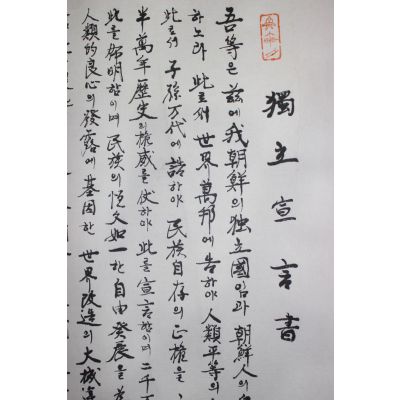 獨立宣言書
吾等은 玆에 我朝鮮의 独立國임과 朝鮮人의
하노라 此로써 世界萬邦에 告하야 人類平等의
此로써 子孫万代에 誥하야 民族自存의 正權을
半萬年歷史의 權威를 仗하야 此를 宣言함이며 二千
此를 佈明함이며 民族의 恒久如一한 自由發展을
人類的良心의 發露에 基因한 世界改造의 大機